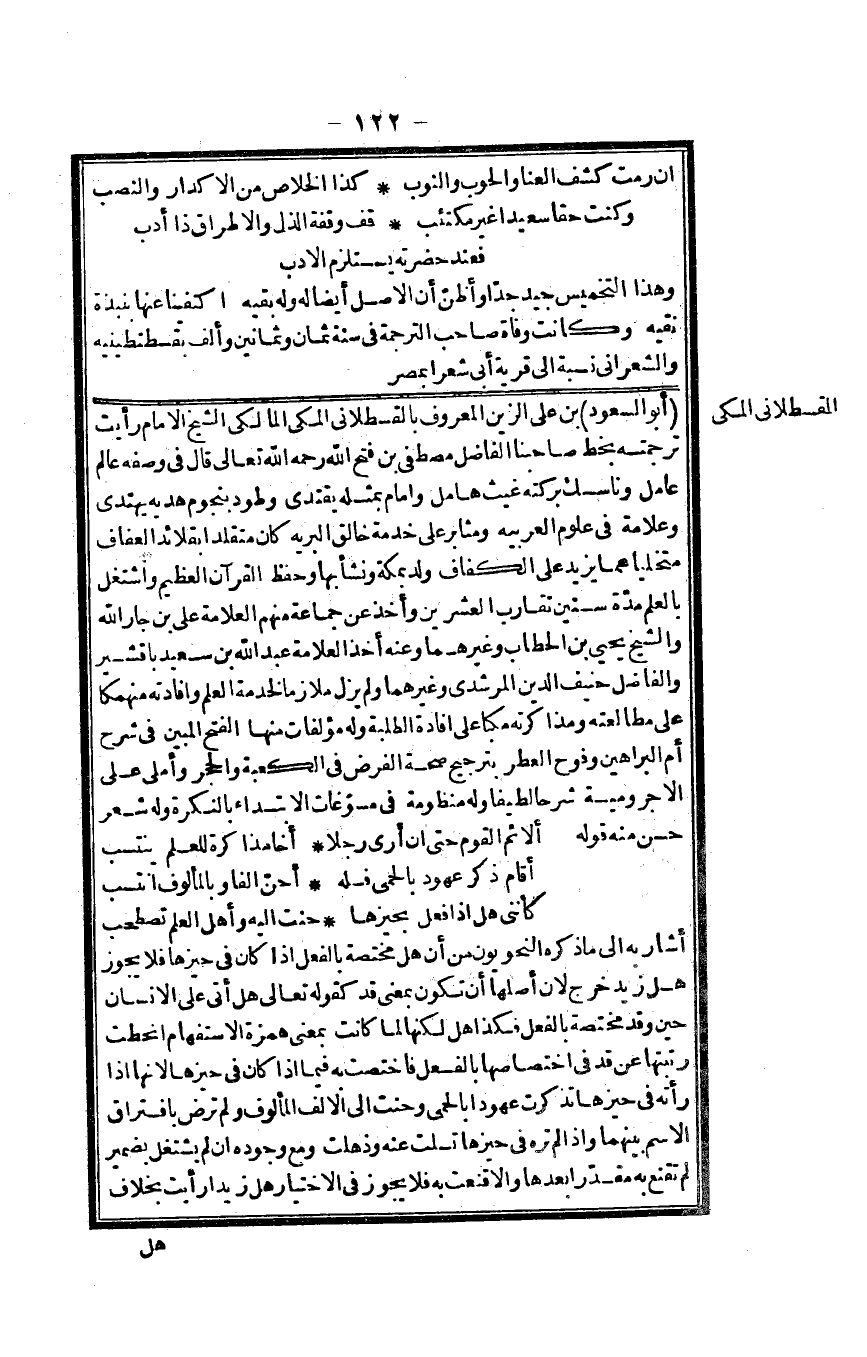 - ١٢٢ -
ان رمت كشف العنا والحوب والنوب * كذا الخلاص من الاكدار والنصب
وكنت حقا سعيدا غير مكتئب * قف وقفة الذل والاطراق ذا أدب
فعند حضرته يستلزم الادب
وهذا التخميس جيد جدّا وأظنّ أن الاصل أيضا له وله بقيه اكتفينا عنها بنبذة
نقيه وكانت وفاة صاحب الترجمة فى سنة ثمان وثمانين وألف بقسطنطينيه
والشعرانى نسبة الى قرية أبى شعرا بمصر
القسطلانى المكى
(أبو السعود) بن على الزين المعروف بالقسطلانى المكى المالكى الشيخ الامام رأيت
ترجمته بخط صاحبنا الفاضل مصطفى بن فتح الله رحمه الله تعالى قال فى وصفه عالم
عامل وناسك بركته غيث هامل وامام بمثله يقتدى وطود بنجوم هديه يهتدى
وعلامة فى علوم العربيه ومثابر على خدمة خالق البريه كان متقلدا بقلائد العفاف
متخليا عما يزيد على الكفاف ولد بمكة ونشأ بها وحفظ القرآن العظيم واشتغل
بالعلم مدّة سنين تقارب العشرين وأخذ عن جماعة منهم العلامة على بن جار الله
والشيخ يحيى بن الحطاب وغيرهما وعنه أخذ العلامة عبد الله بن سعيد باقشير
والفاضل حنيف الدين المرشدى وغيرهما ولم يزل ملازما لخدمة العلم وافادته منهمكا
على مطالعته ومذاكرته مكبا على افادة الطلبة وله مؤلفات منها الفتح المبين فى شرح
أم البراهين وذوح العطر بترجيح صحة الفرض فى الكعبة والحجر وأملى على
الاجرومية شرحا لطيفا وله منظومة فى مسوّغات الابتداء بالنكرة وله شعر
حسن منه قوله ألائم القوم حتى ان أرى رجلا * أخا مذاكرة للعلم ينتسب
أقام ذكر عهود بالحمى فله * أحنّ الفا وبالمألوف انتسب
كأننى هل اذا فعل بحيزها * حنت اليه وأهل العلم تصطحب
أشار به الى ما ذكره النحويون من أن هل مختصة بالفعل اذا كان فى حيزها فلا يجوز
هل زيد خرج لان أصلها أن تكون بمعنى قد كقوله تعالى هل أتى على الانسان
حين وقد مختصة بالفعل فكذا هل لكنها لما كانت بمعنى همزة الاستفهام انحطت
رتبتها عن قد فى اختصاصها بالفعل فاختصت به فيما اذا كان فى حيزها لانها اذا
رأته فى حيزها تذكرت عهودا بالحمى وحنت الى الالف المألوف ولم ترض بافتراق
الاسم بينهما واذا لم تره فى حيزها تسلت عنه وذهلت ومع وجوده ان لم يشتغل بضمير
لم تقنع به مقدّرا بعدها والا قنعت به فلا يجوز فى الاختيار هل زيدا رأيت بخلاف
هل